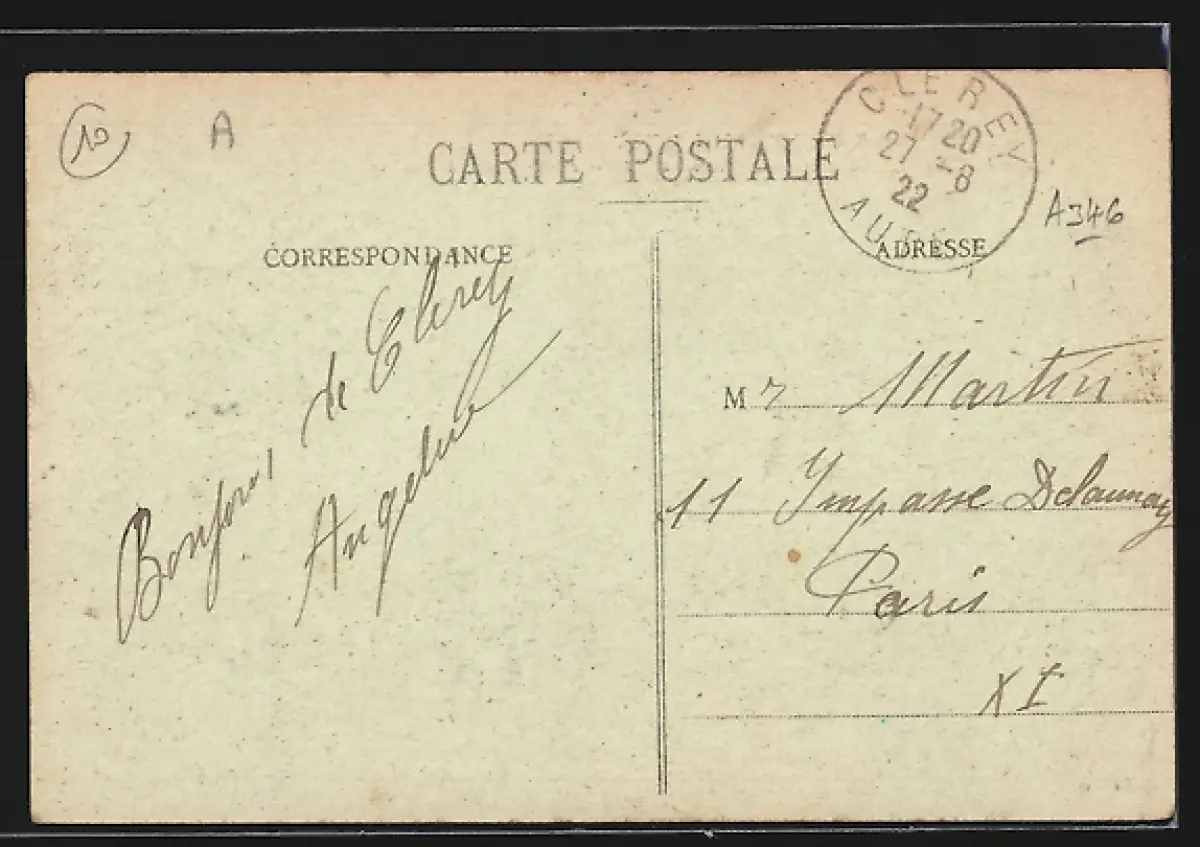 10
A
CARTE POSTALE
CLEREY
17 20
27 -8
22
AUBE
A346
CORRESPONDANCE
ADRESSE
Bonjour de Clerey
Angeline
Mr Martin
11 Impasse Delaunay
Paris
XI